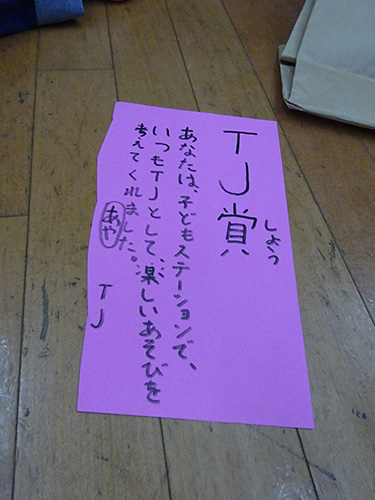 TJ賞
しょう
あなたは、子どもステーションで、
いつもTJとして、楽しいあそびを
考えてくれました。
あや
TJ